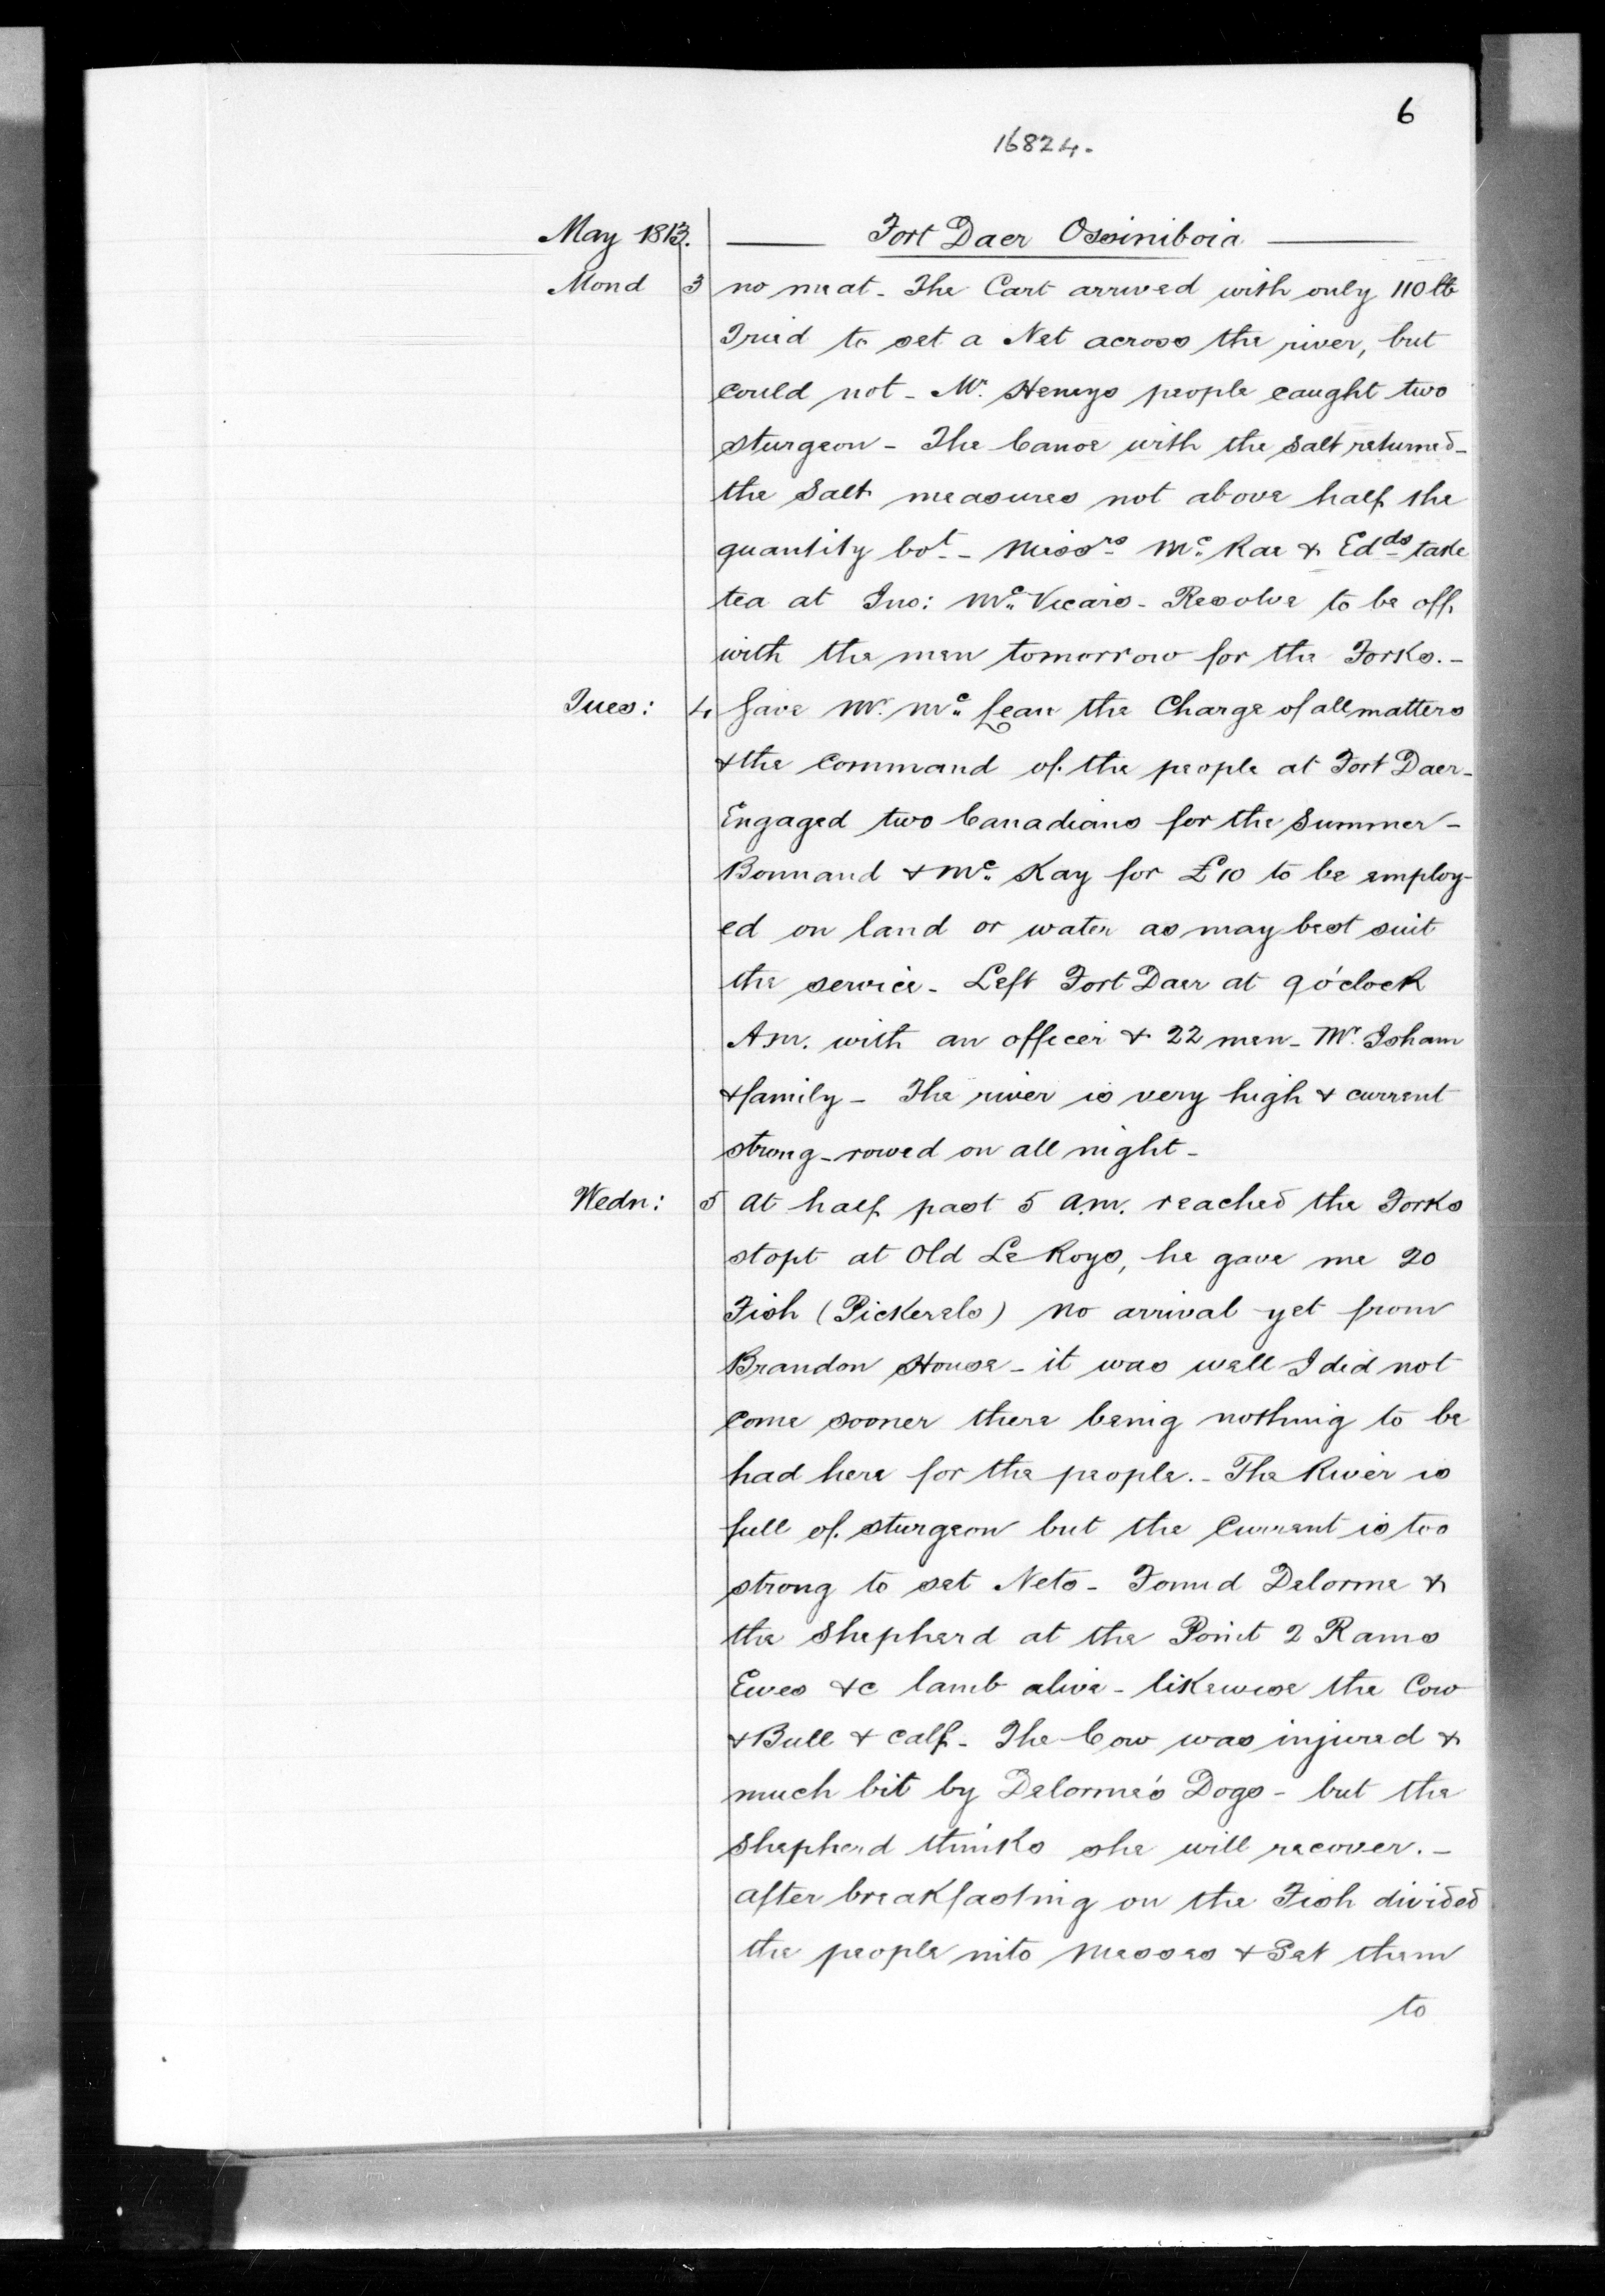 6
16824.
May 1813. Fort Daer Ossiniboia
Mond 3 no meat - The Cart arrived with only 110 lb
Tried to set a Net across the river, but
could not - Mr. Heneys people caught two
sturgeon - The Canoe with the Salt returned -
the Salt measures not above half the
quantity bot. - Messrs Mc. Rae & Edds take
tea at Jno: Mc. Vicars - Resolve to be off
with the men tomorrow for the Forks. -
Tues: 4 Gave Mr. Mc. Lean the Charge of all matters
& the Command of the people at Fort Daer -
Engaged two Canadians for the Summer -
Bonnand & Mc. Kay for £10 to be employ-
ed on land or water as may best suit
the service - Left Fort Daer at 9 o'clock
A.m. with an officer & 22 men - Mr. Isham
& family - The river is very high & current
strong - rowed on all night -
Wedn: 5 At half past 5 a.m. reached the Forks
stopt at Old Le Roys, he gave me 20
Fish (Pickerels) No arrival yet from
Brandon House - it was well I did not
come sooner there being nothing to be
had here for the people. - The River is
full of sturgeon but the Current is too
strong to set Nets - Found Delorme &
the Shepherd at the Point 2 Rams
Ewes &c lamb alive - likewise the Cow
& Bull & calf - The Cow was injured &
much bit by Delorme's Dogs - but the
Shepherd thinks she will recover. -
after breakfasting on the Fish divided
the people into Messes & Set them
to